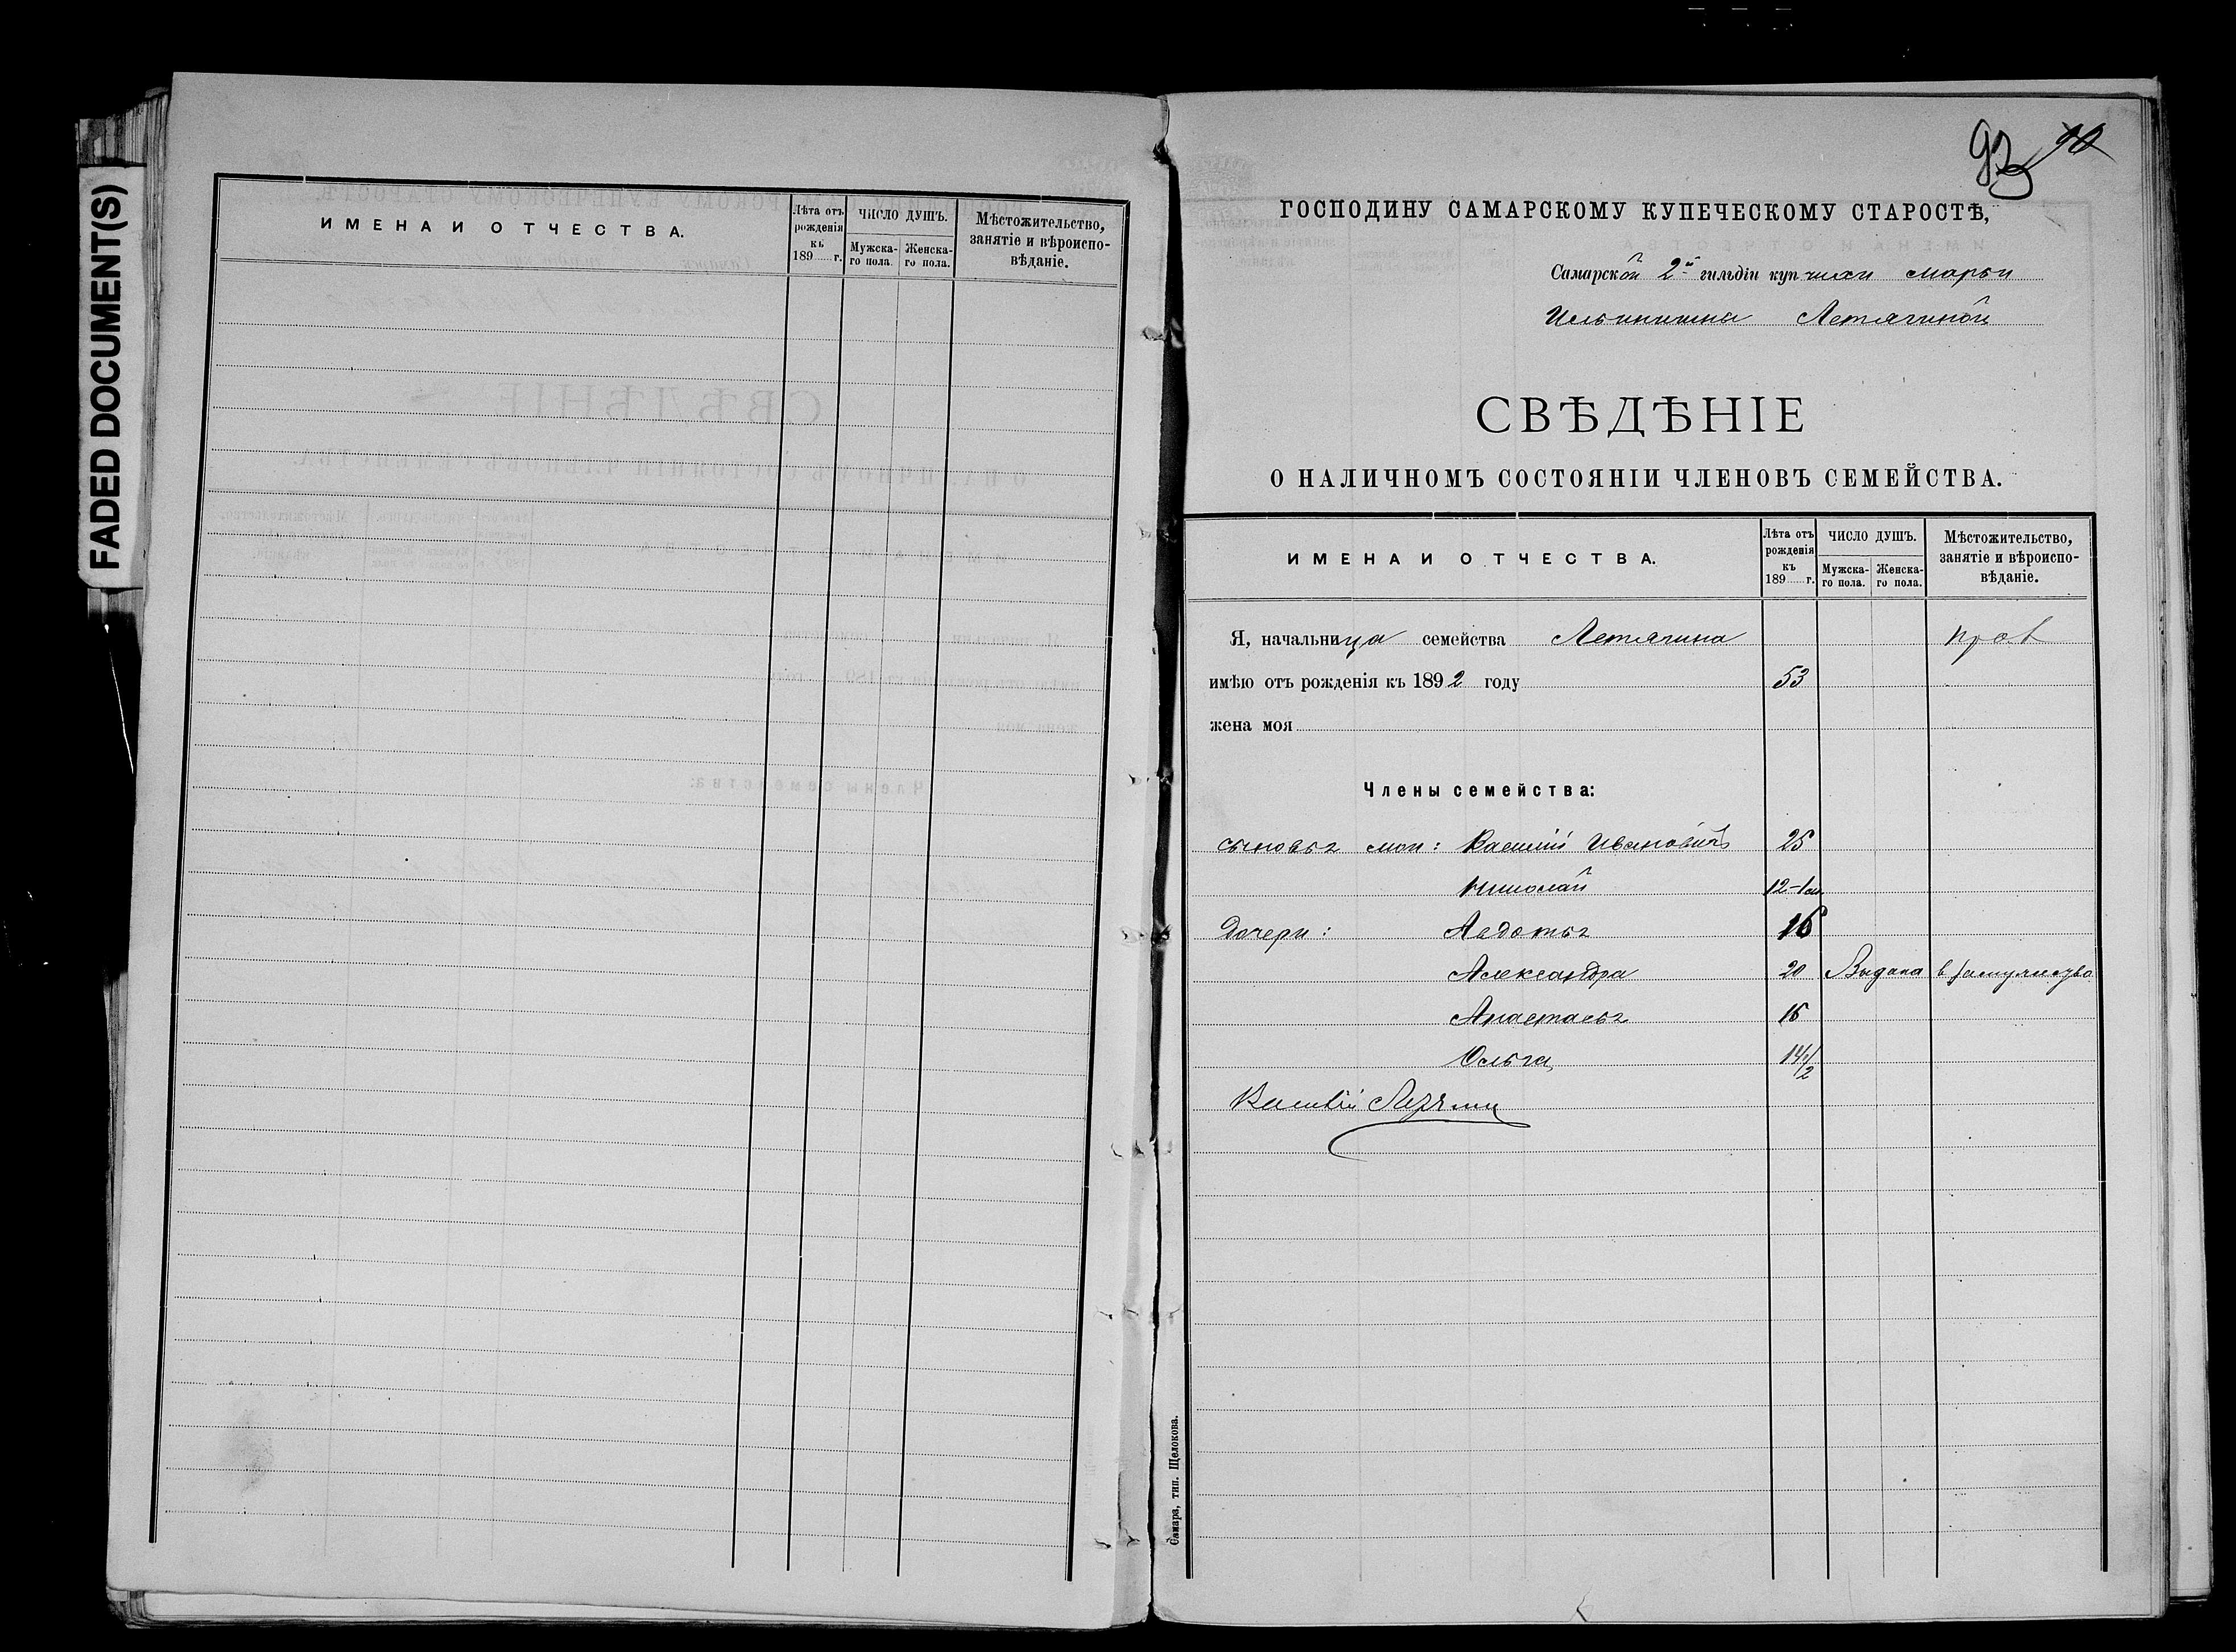 FADED DOCUMENT(S)
ИМЕНА И ОТЧЕСТВА.
Лѣта отъ рожденія къ 189......г.
ЧИСЛО ДУШЪ.
Мужска-го пола.
Женска-го пола.
Мѣстожительство, занятіе и вѣроиспо-вѣданіе.
93 90
ГОСПОДИНУ САМАРСКОМУ КУПЕЧЕСКОМУ СТАРОСТѢ,
Самарской 2й гильдіи купчихи Марьи
Ильинишны Летягиной
СВѢДѢНІЕ
О НАЛИЧНОМЪ СОСТОЯНІИ ЧЛЕНОВЪ СЕМЕЙСТВА.
ИМЕНА И ОТЧЕСТВА.
Лѣта отъ рожденія къ 189......г.
ЧИСЛО ДУШЪ.
Мужска-го пола.
Женска-го пола.
Мѣстожительство, занятіе и вѣроиспо-вѣданіе.
Я, начальница семейства Летягина прав
имѣю отъ рожденія къ 1892 году 53
жена моя
Члены семейства:
сыновья мои: Василій Ивановичъ 25
Николай 12
Дочери: Авдотья 16
Александра 20 Выдана в замужество
Анастасья 16
Ольга 14 1/2
Василій
Самара, тип. Щелокова.